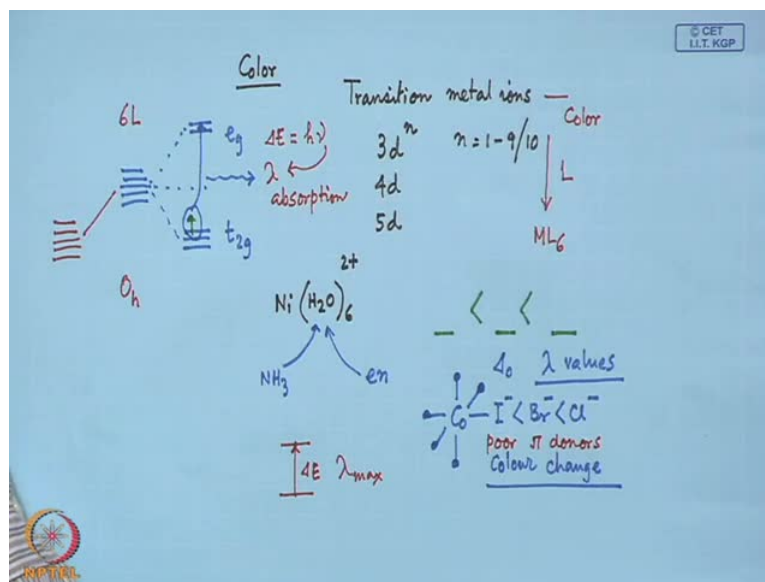 © CET
I.I.T. KGP
Color
Transition metal ions — Color
6L
eg
ΔE = hν
λ
absorption
t2g
Oh
3dⁿ n = 1 - 9/10
4d
5d
L
ML6
Ni(H2O)6 2+
NH3
en
_ < _ < _
Δo λ values
Co — I⁻ < Br⁻ < Cl⁻
poor π donors
Colour change
ΔE λmax
NPTEL